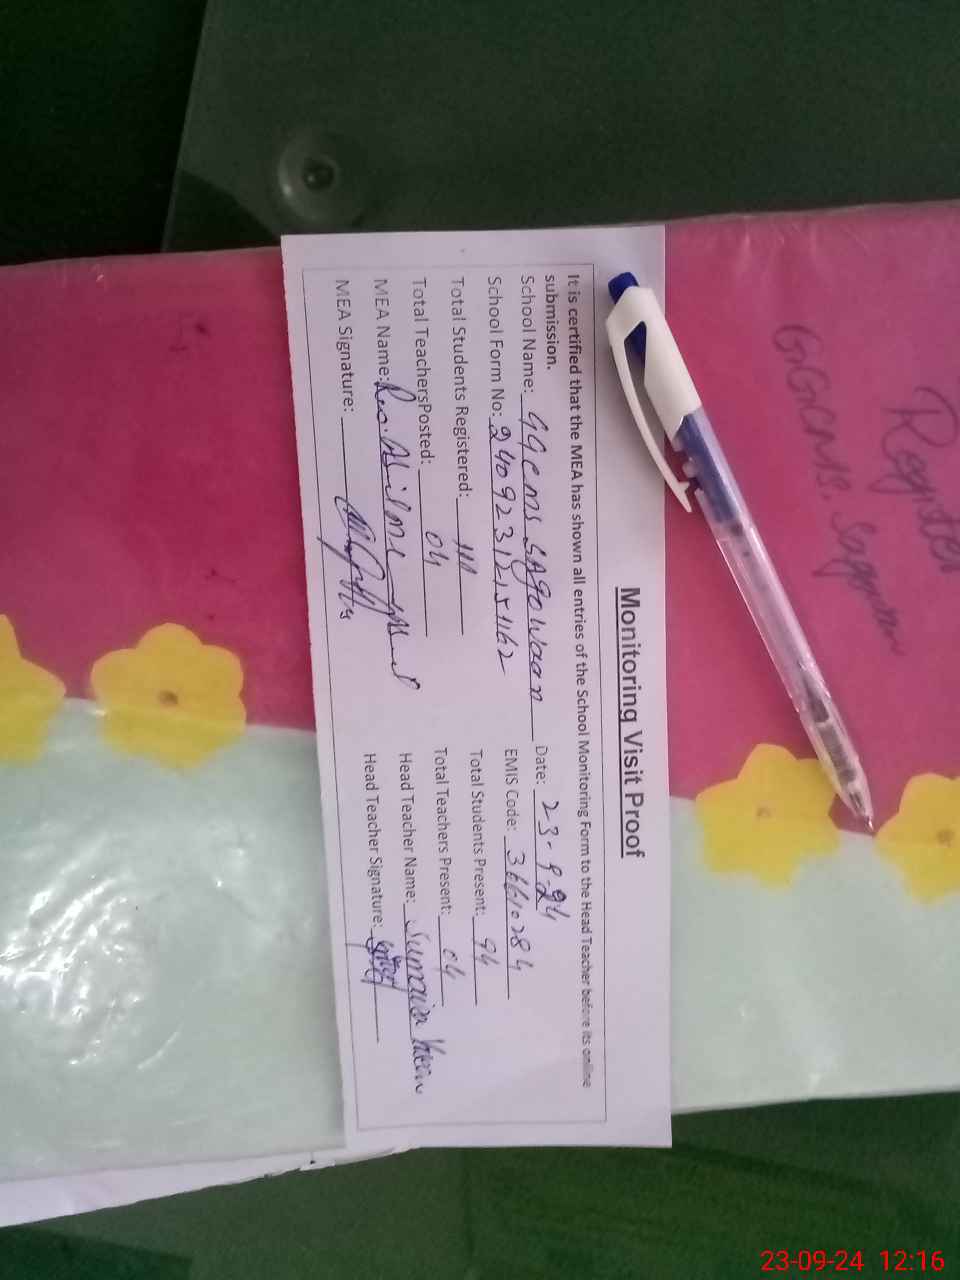 Monitoring Visit Proof
It is certified that the MEA has shown all entries of the School Monitoring Form to the Head Teacher before its online
submission.
School Name: GGCMS Date: 23-9-24
School Form No: EMIS Code: 36610284
Total Students Registered: Total Students Present: 94
Total TeachersPosted: 04 Total Teachers Present: 04
MEA Name: Head Teacher Name: Sumaira
MEA Signature: Head Teacher Signature:
Register
GGCMS.
23-09-24 12:16